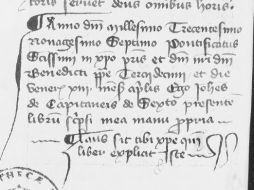 toris seruet deus omnibus horis.
Anno dm̄ millesimo Trecentesimo
Nonagesimo Septimo Pontificatus
Sc̄issimi in xp̄o pr̄is et dm̄ nr̄i dm̄
Benedicti pp̄e Terciidecimi et die
ven̄ xiii mēs aplīs Ego Joh̄es
de Capitaneis de Sexto presentē
librū sc̄psi mea manu ppria
Laus sit tibi xp̄e qm̄
liber explicit iste
THECE